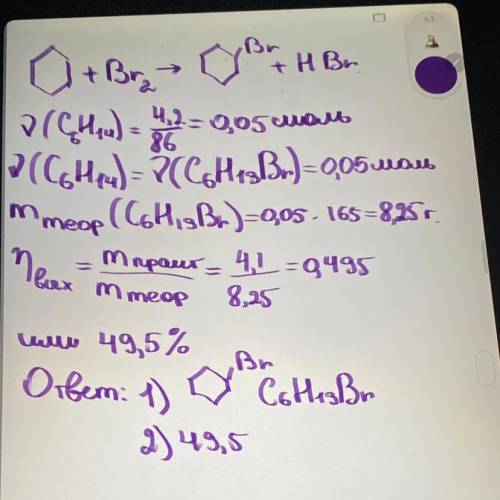 + Br₂ → Br + HBr
ν(C₆H₁₄) = 4,2/86 = 0,05 моль
ν(C₆H₁₄) = ν(C₆H₁₃Br) = 0,05 моль
m теор (C₆H₁₃Br) = 0,05 · 165 = 8,25 г.
η вых = m практ / m теор = 4,1/8,25 = 0,495
или 49,5%
Ответ: 1) Br C₆H₁₃Br
2) 49,5